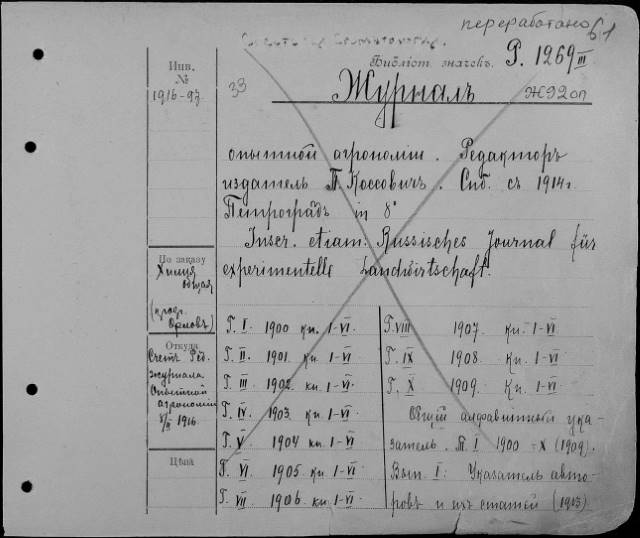 переработано 61
Инв.
№
1916-97
33
Библіот. значекъ. Р. 1269 III
Журналъ
Ж92оп
опытной агрономіи. Редакторъ
издатель П. Коссовичъ. Спб. съ 1914 г.
Петроградъ in 8°
Inscr. etiam: Russisches Journal für
experimentelle Landwirtschaft.
По заказу
Химия
общая
(проф.
Орловъ)
Откуда
Счетъ Ред.
журнала
Опытной
агрономіи
1916
Цѣна
Т. I. 1900 кн. I-VI
Т. II. 1901. кн. I-VI
Т. III 1902. кн I-VI
Т. IV. 1903 кн. I-VI
Т. V 1904 кн. I-VI
Т. VI. 1905 кн. I-VI
Т. VII 1906 кн. I-VI
Т. VIII 1907. кн. I-VI
Т. IX 1908. кн. I-VI
Т. X 1909. Кн. I-VI
Общій алфавитный ука
затель. Т. I 1900 - X (1909).
Вып. I: Указатель авто-
ровъ и ихъ статей (1913)